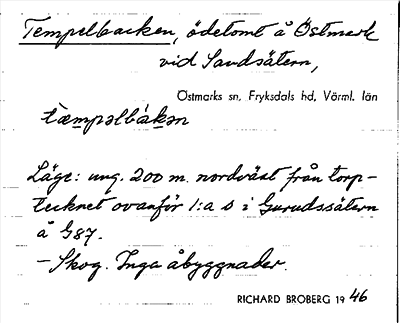 Tempelbacken, ödetomt å Östmark
vid Sandsätern,
Östmarks sn, Fryksdals hd, Värml. län
tæ̀mpəlbákən
Läge: ung. 200 m. nordväst från torp-
tecknet ovanför 1:a s i Gurudssätern
å G87.
- Skog. Inga åbyggnader.
RICHARD BROBERG 1946